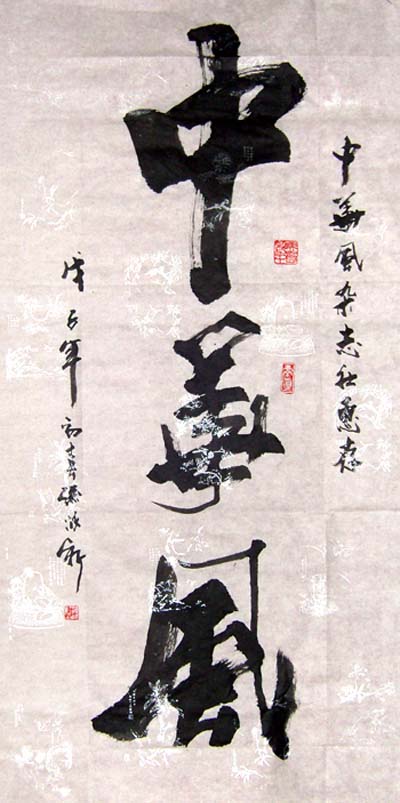 中華風杂志社惠存
中華風
戊子年初春